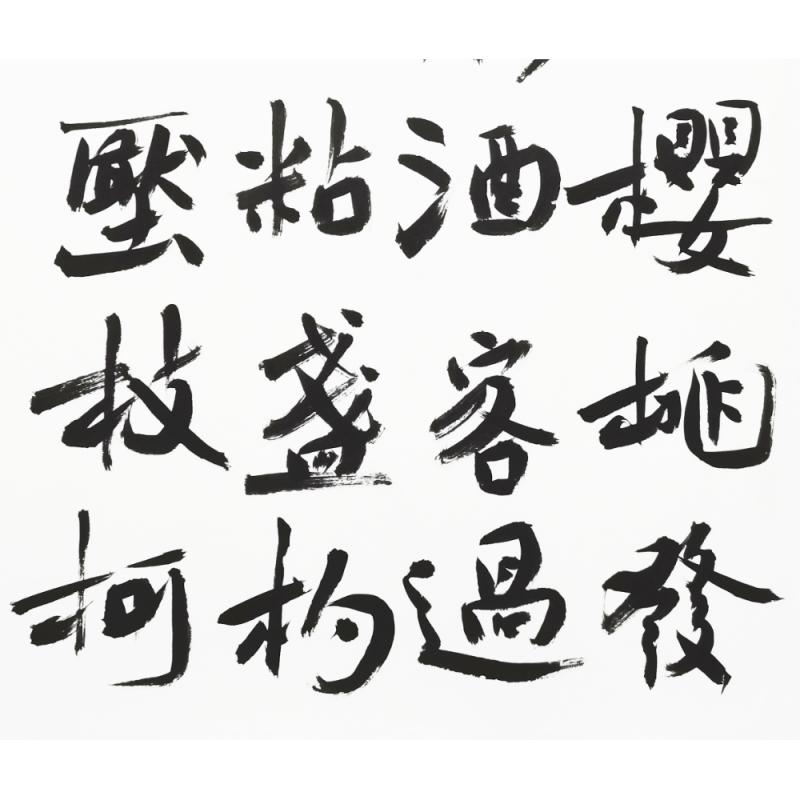 櫻桃發
酒客過
粘盞杓
壓枝柯